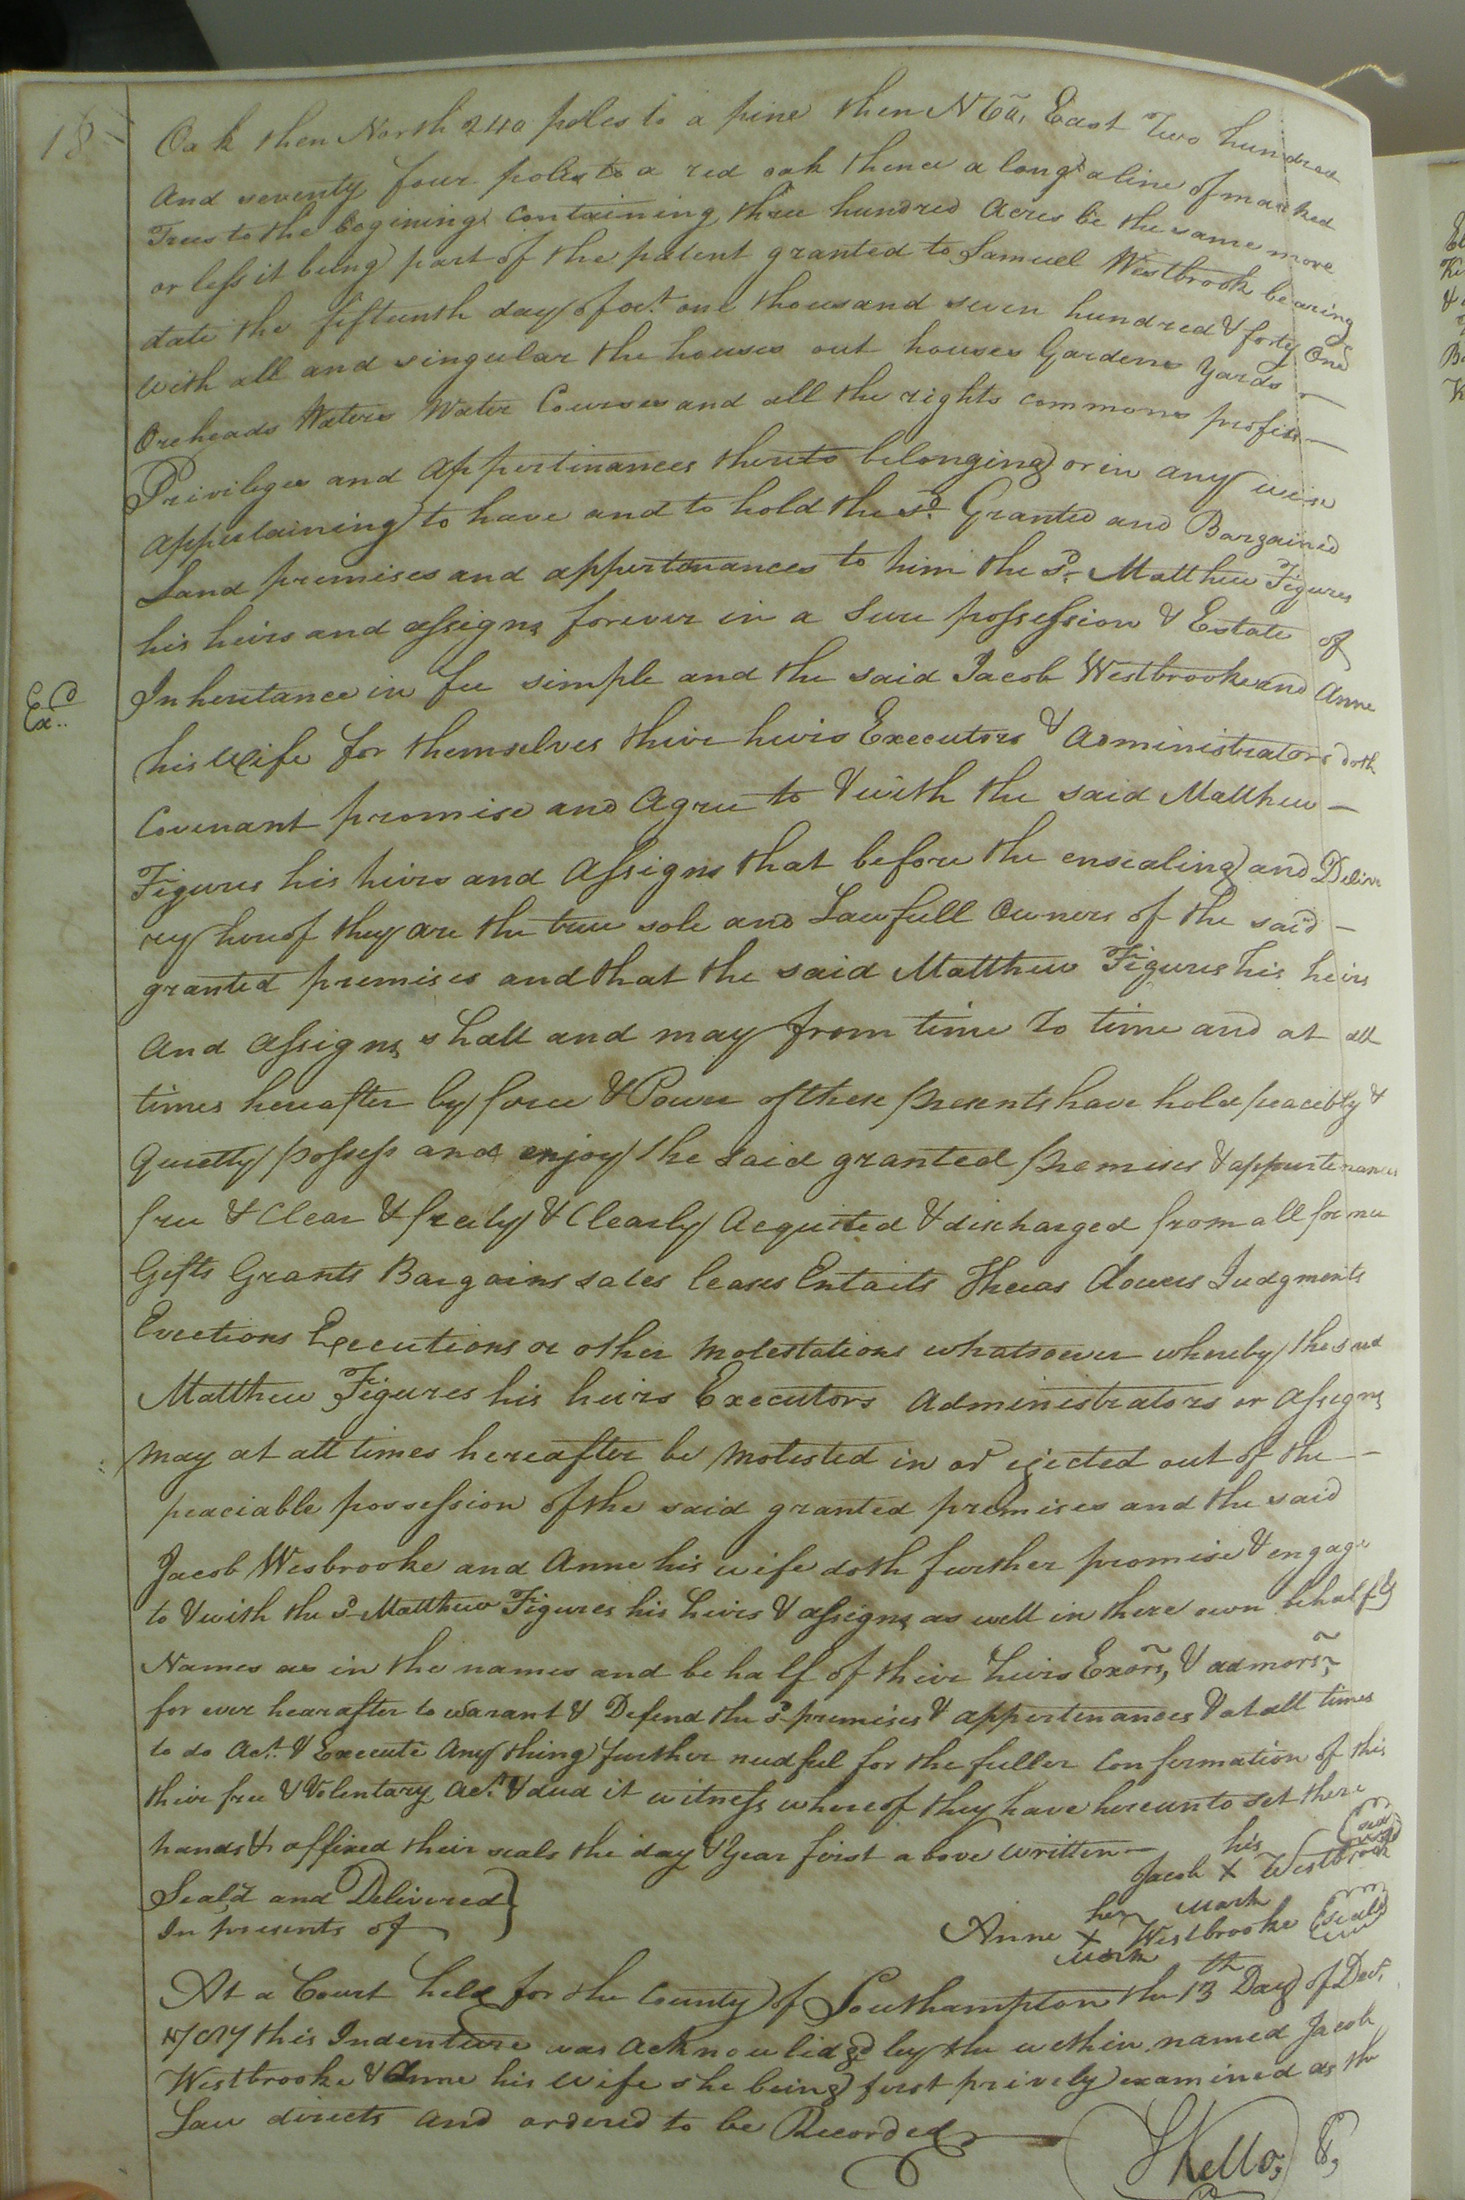 18
Oak then North 240 poles to a pine then N 60, East Two hundred
And seventy four poles to a red oak thence a long a line of marked
Trees to the begining containing three hundred Acres be the same more
or less it being part of the patent granted to Samuel Westbrook bearing
date the fifteenth day of oct. one thousand seven hundred & forty One
with all and singular the houses out houses Gardens yards
Orcheads Waters Water Courses and all the rights commons profits
Privileges and Appertinances thereto belonging or in any wise
appertaining to have and to hold the sd. Granted and Bargained
Land premises and appertenances to him the sd. Matthew Figures
his heirs and assigns forever in a Sure possession & Estate of
Inheritance in fee simple and the said Jacob Westbrooke and Anne
Exd..
his Wife for themselves thire heirs Executors & Administrators doth
Covenant promise and Agree to & with the said Matthew
Figures his heirs and Assigns that before the ensealing and Delive
rey hereof they are the true sole and Lawfull Owners of the said
granted premises and that the said Matthew Figures his heirs
And Assigns shall and may from time to time and at all
times hereafter by force & Power of these presents have hold peacibly &
Quietly possess and enjoy the said granted premises & appurtenances
free & Clear & freely & Clearly Acquited & discharged from all former
Gifts Grants Bargains sales leases Entails dowers Judgments
Evections Executions or other molestations whatsoever whereby the said
Matthew Figures his heirs Executors Administrators or Assigns
may at all times hereafter be molested in or ejected out of the
peaciable possession of the said granted premises and the said
Jacob Wesbrooke and Anne his wife doth further promise & engage
to & with the sd Matthew Figures his heirs & assigns as well in there own behalf &
Names as in the names and behalf of thire heirs Exors, & admors,
for ever hearafter to warant & Defend the sd premises & appertenances & at all times
to do Act. & Execute Any thing further needful for the fuller Conformation of this
thire free & Volentary Act. & deed it witness whereof they have hereunto set there
hands & affixed their seals the day & Year first above written
his
Jacob X Westbrook (seal)
mark
Seald and Delivered
In presents of
her
Anne X Westbrooke (seal)
mark
At a Court held for the County of Southampton the 13th Day of Decr.
this Indenture was Acknowlidged by the within named Jacob
Westbrooke & Anne his wife she being first prively examined as the
Law directs and ordered to be Recorded
Kello,